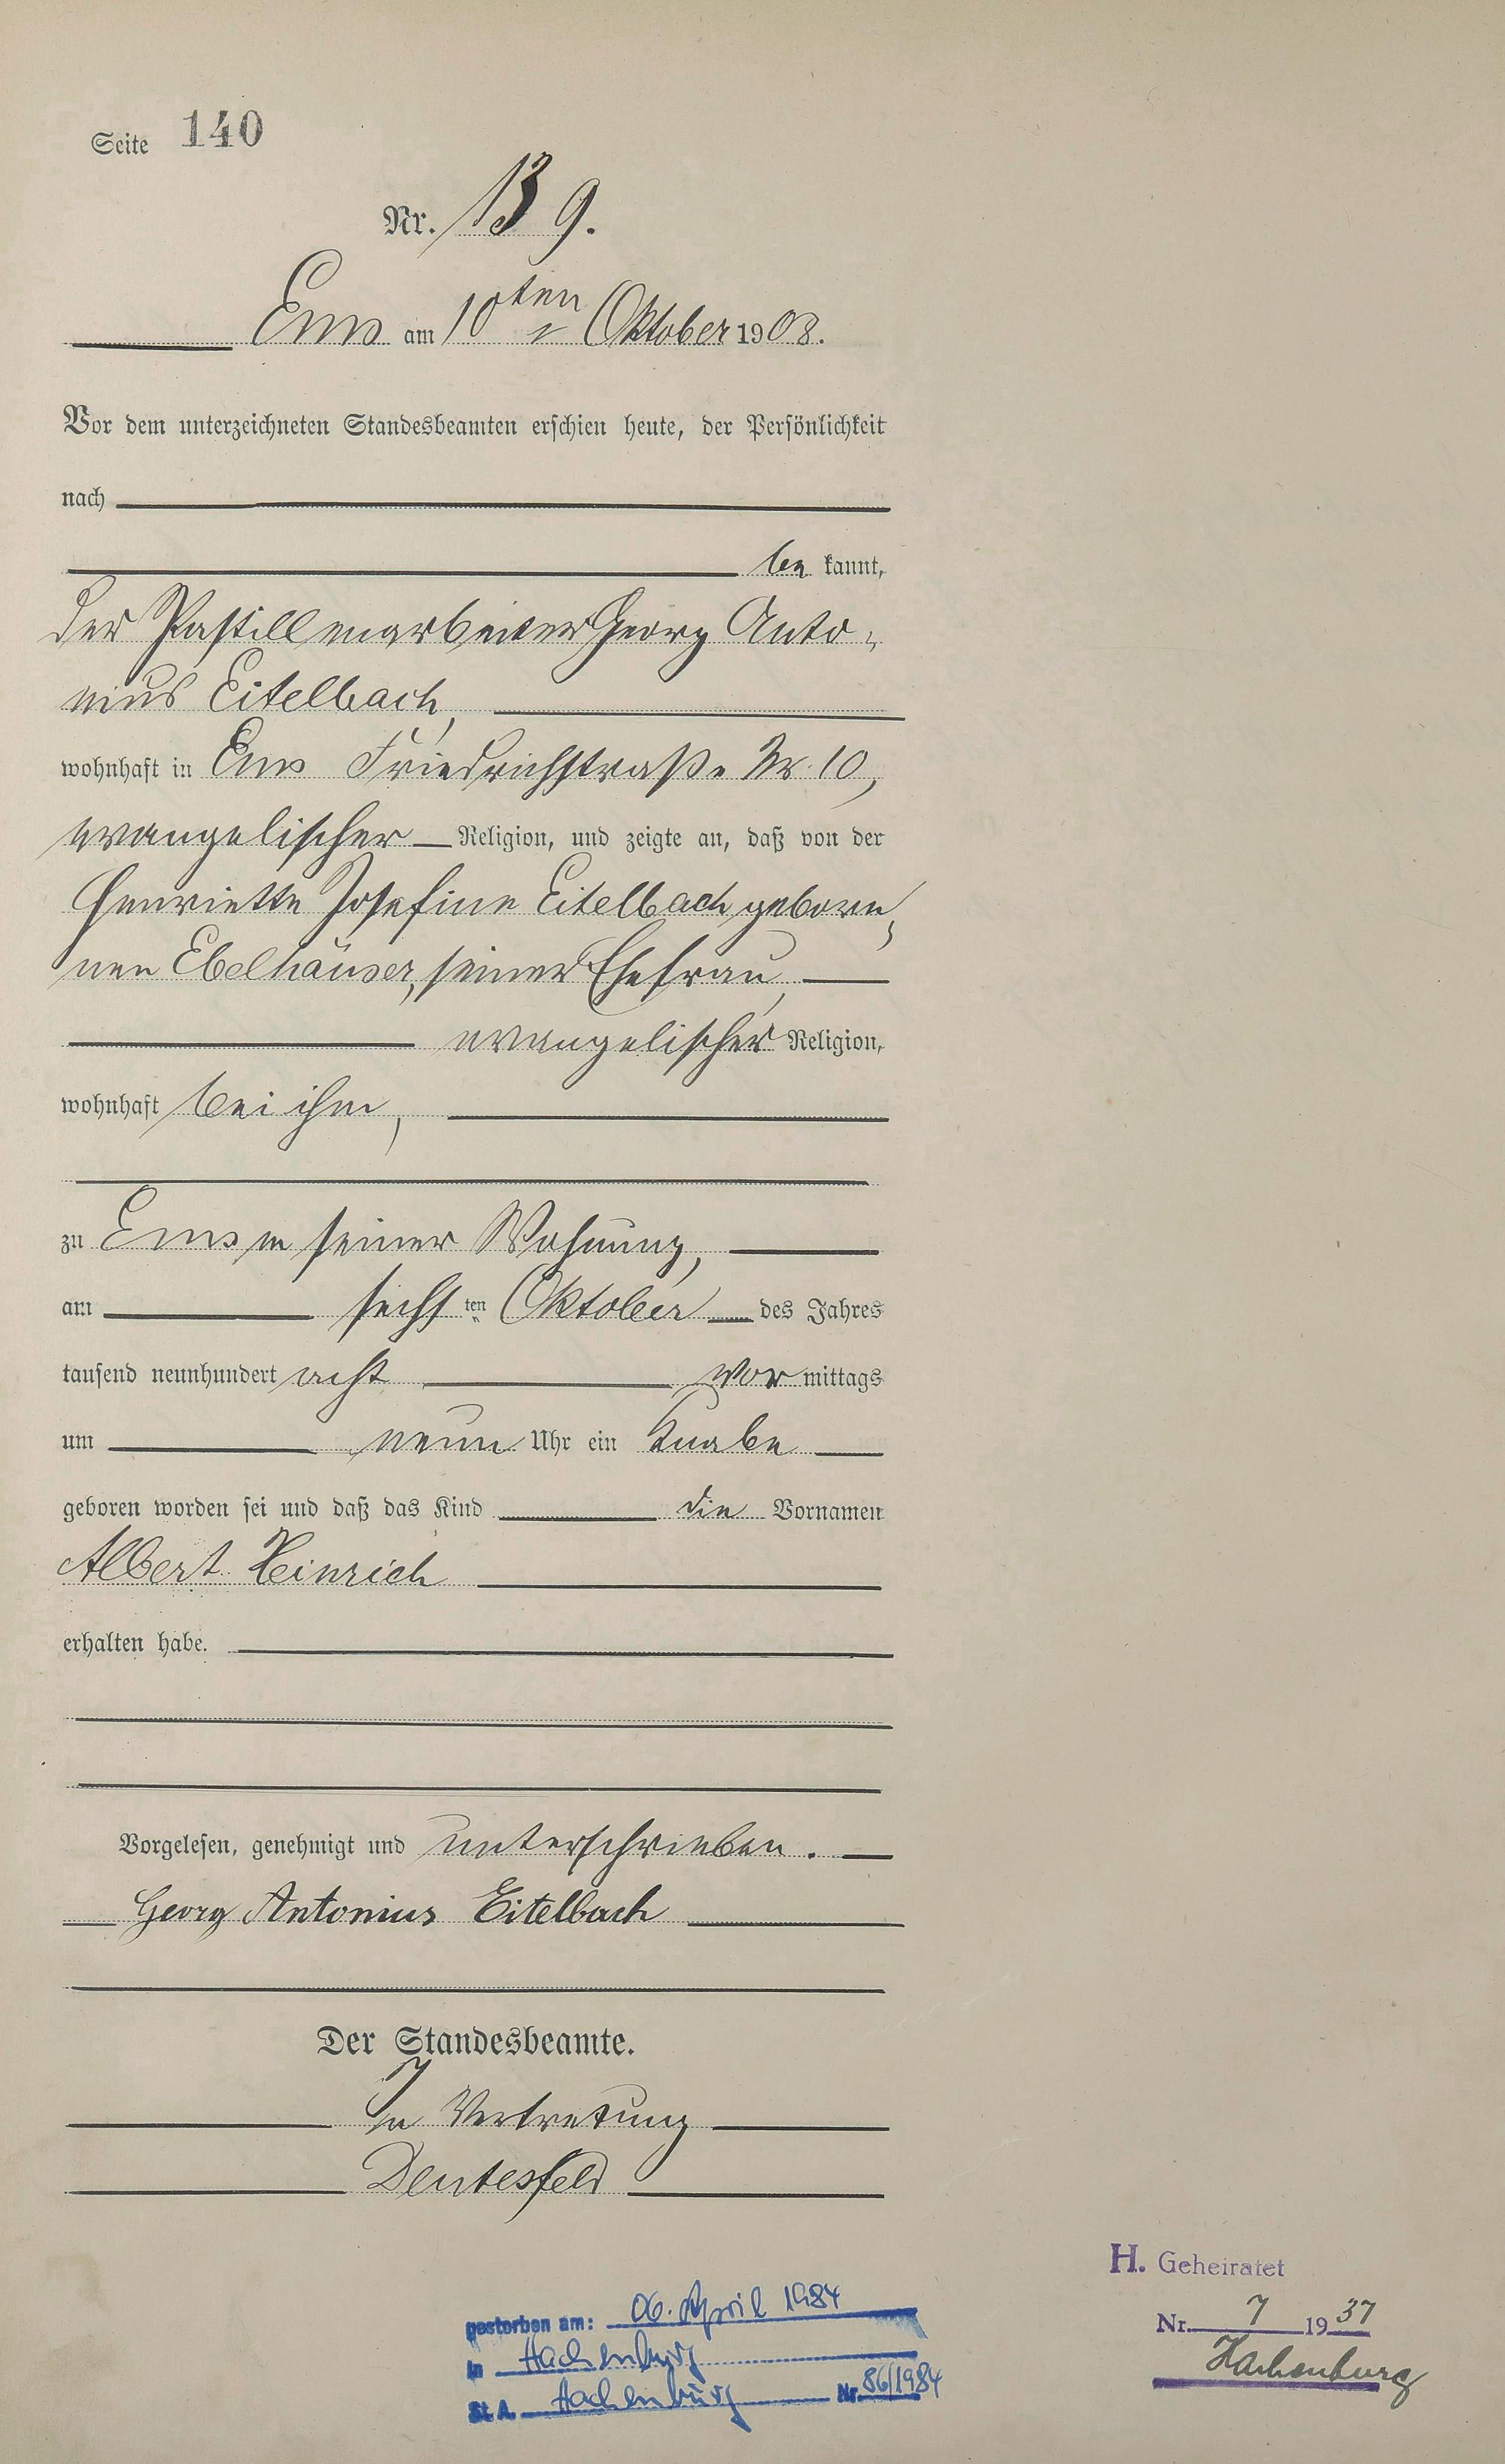 Seite 140
Nr. 139.
Ems am 10ten Oktober 1908.
Vor dem unterzeichneten Standesbeamten erschien heute, der Persönlichkeit
nach
be kannt,
der Pastillenarbeiter Georg Anto-
nius Eitelbach,
wohnhaft in Ems Friedrichstraße Nr. 10,
evangelischer Religion, und zeigte an, daß von der
Henriette Josefine Eitelbach gebore-
nen Ebelhäuser, seiner Ehefrau,
evangelischer Religion,
wohnhaft bei ihm,
zu Ems in seiner Wohnung,
am sechsten Oktober des Jahres
tausend neunhundert acht Vor mittags
um neun Uhr ein Knabe
geboren worden sei und daß das Kind die Vornamen
Albert Heinrich
erhalten habe.
Vorgelesen, genehmigt und unterschrieben.
Georg Antonius Eitelbach
Der Standesbeamte.
In Vertretung
Deutesfeld
H. Geheiratet
Nr. 7 1937
Hachenburg
gestorben am: 06. April 1984
in Hachenburg
St. A. Hachenburg Nr. 86/1984